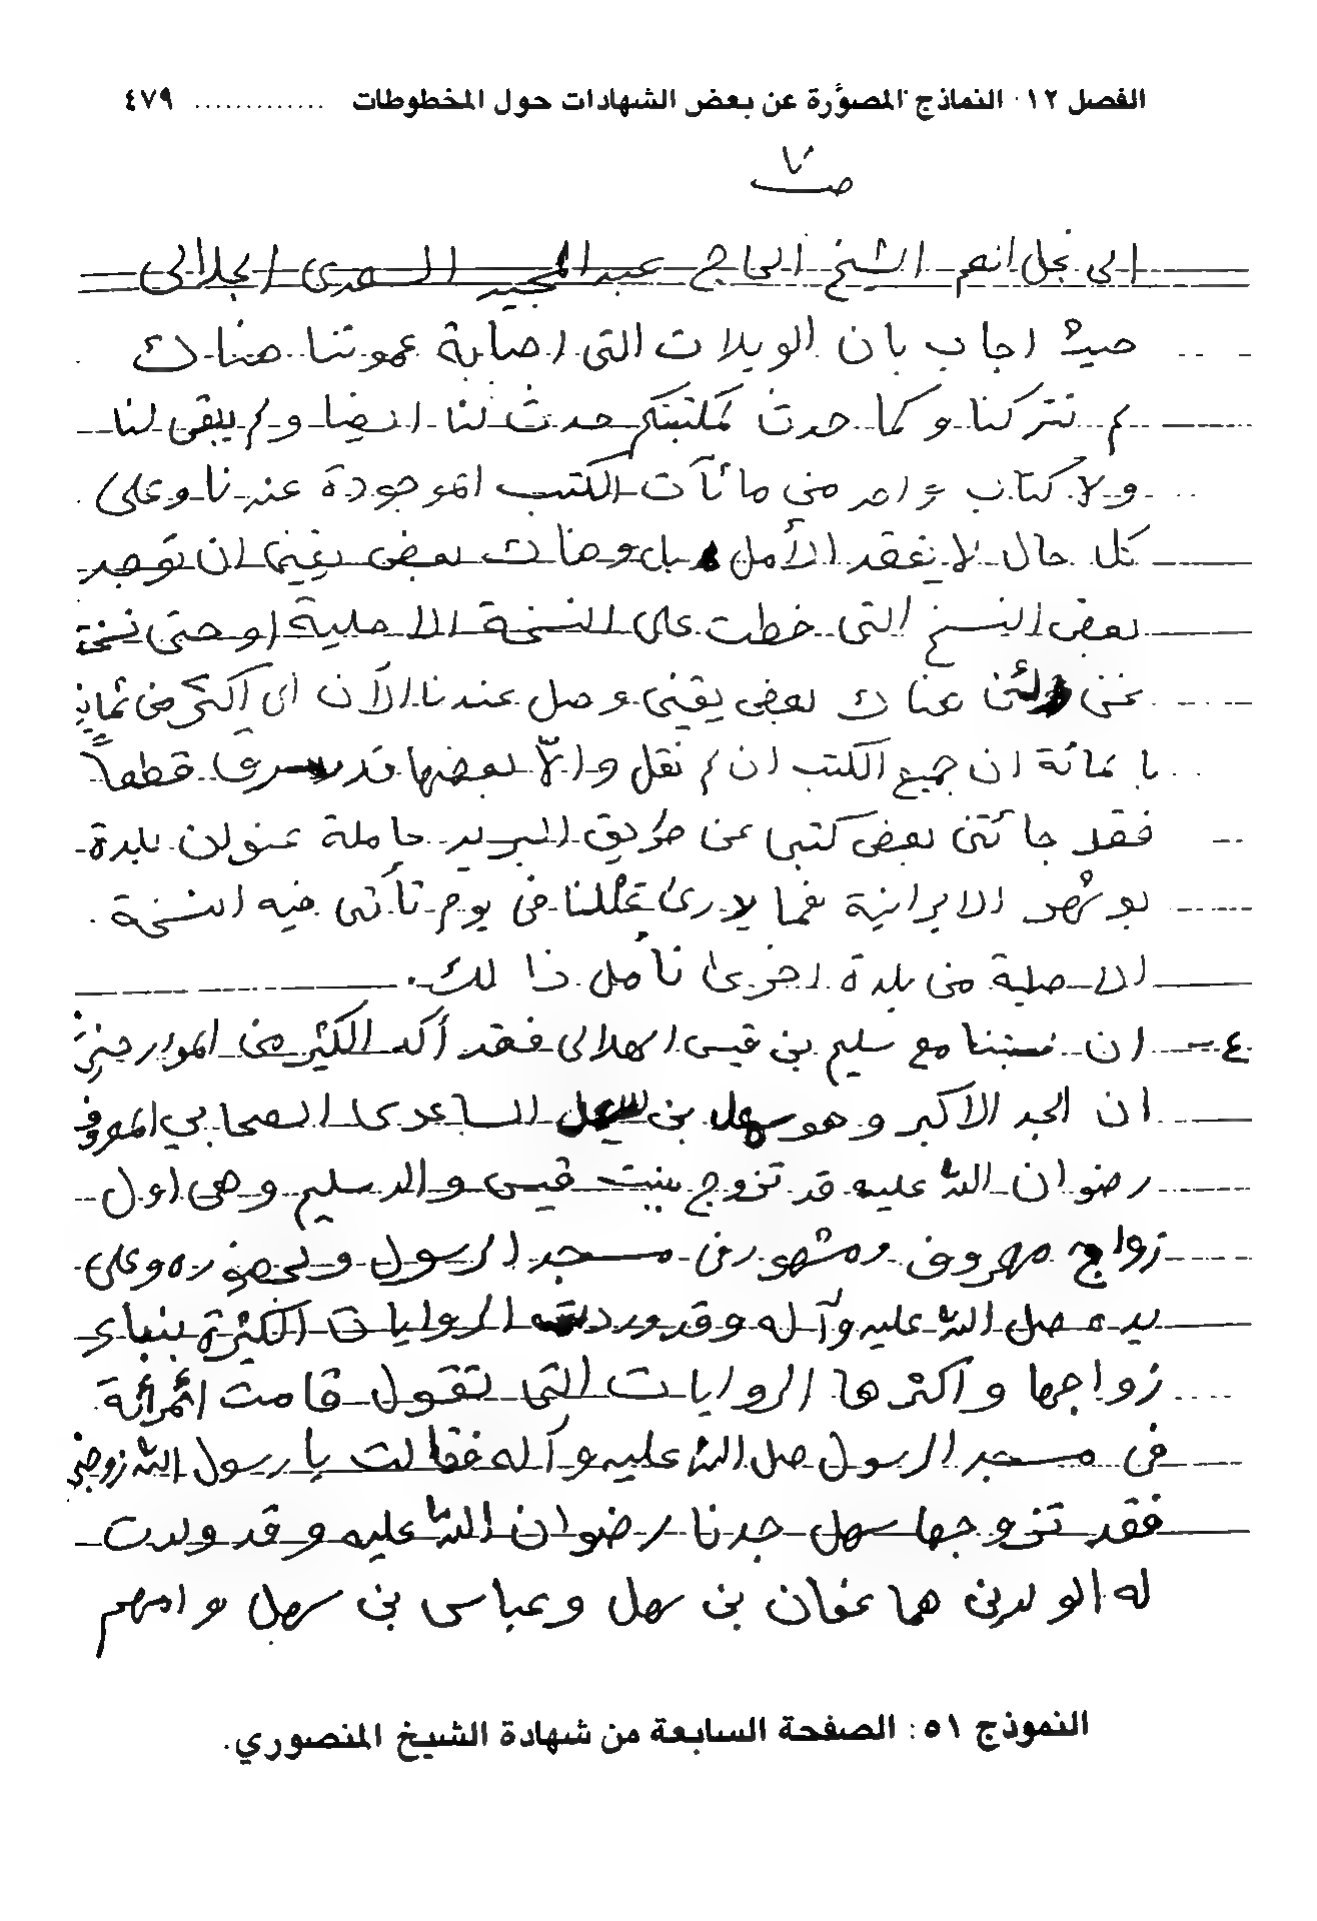 الفصل ١٢: النماذج المصوّرة عن بعض الشهادات حول المخطوطات ............. ٤٧٩
ص ٧
الى نجل انهم الشيخ الحاج عبدالمجيد الصمدى الجلالى
حيث اجاب بان الويلات التى اصابة عموتنا هناك
لم تتركنا وكما حدث لمكتبتكم حدث لنا ايضا ولم يبقى لنا
ولا كتاب واحد من مائآت الكتب الموجودة عندنا وعلى
كل حال لا يفقد الأمل بل وهناك بعض يقينى ان توجد
بعض النسخ التى خطت على النسخة الاصلية (وحتى نسخة
عناك بعض يقينى وصل عندنا الآن اى اكثر من ثمانين
بالمائة ان جميع الكتب ان لم نقل والاّ بعضها قد سرق قطعاً
فقد جائتنى بعض كتبى عن طريق البريد حاملة عنوان بلدة
بوشهر الايرانية فى يوم تأتى فيه النسخة
الاصلية من بلدة اخرى نأمل ذا لك.
٤- ان نسبنا مع سليم بن قيس الهلالى فقد أكد الكثير من المؤرخين
ان الجد الاكبر وهو سهل بن الساعدى الصحابي المعروف
رضوان الله عليه قد تزوج ببنت قيس والد سليم وهى اول
زواج معروف ومشهور فى مسجد الرسول وبحضوره وعلى
يده صل الله عليه وآله وقد وردت الروايات الكثيرة بنباء
زواجها واكثرها الروايات التى تقول قامت امرأئة
فى مسجد الرسول صل الله عليه وآله فقالت يا رسول الله زوجنى
فقد تزوجها سهل جدنا رضوان الله عليه وقد ولدت
له الولدين هما عفان بن سهل وعباس بن سهل وامهم
النموذج ٥١: الصفحة السابعة من شهادة الشيخ المنصوري.